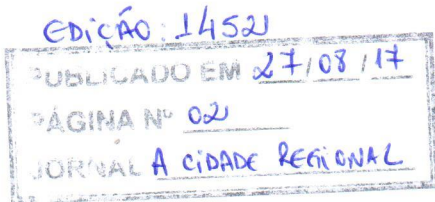 EDIÇÃO: 1452
PUBLICADO EM 27/08/17
PÁGINA Nº 02
JORNAL A CIDADE REGIONAL